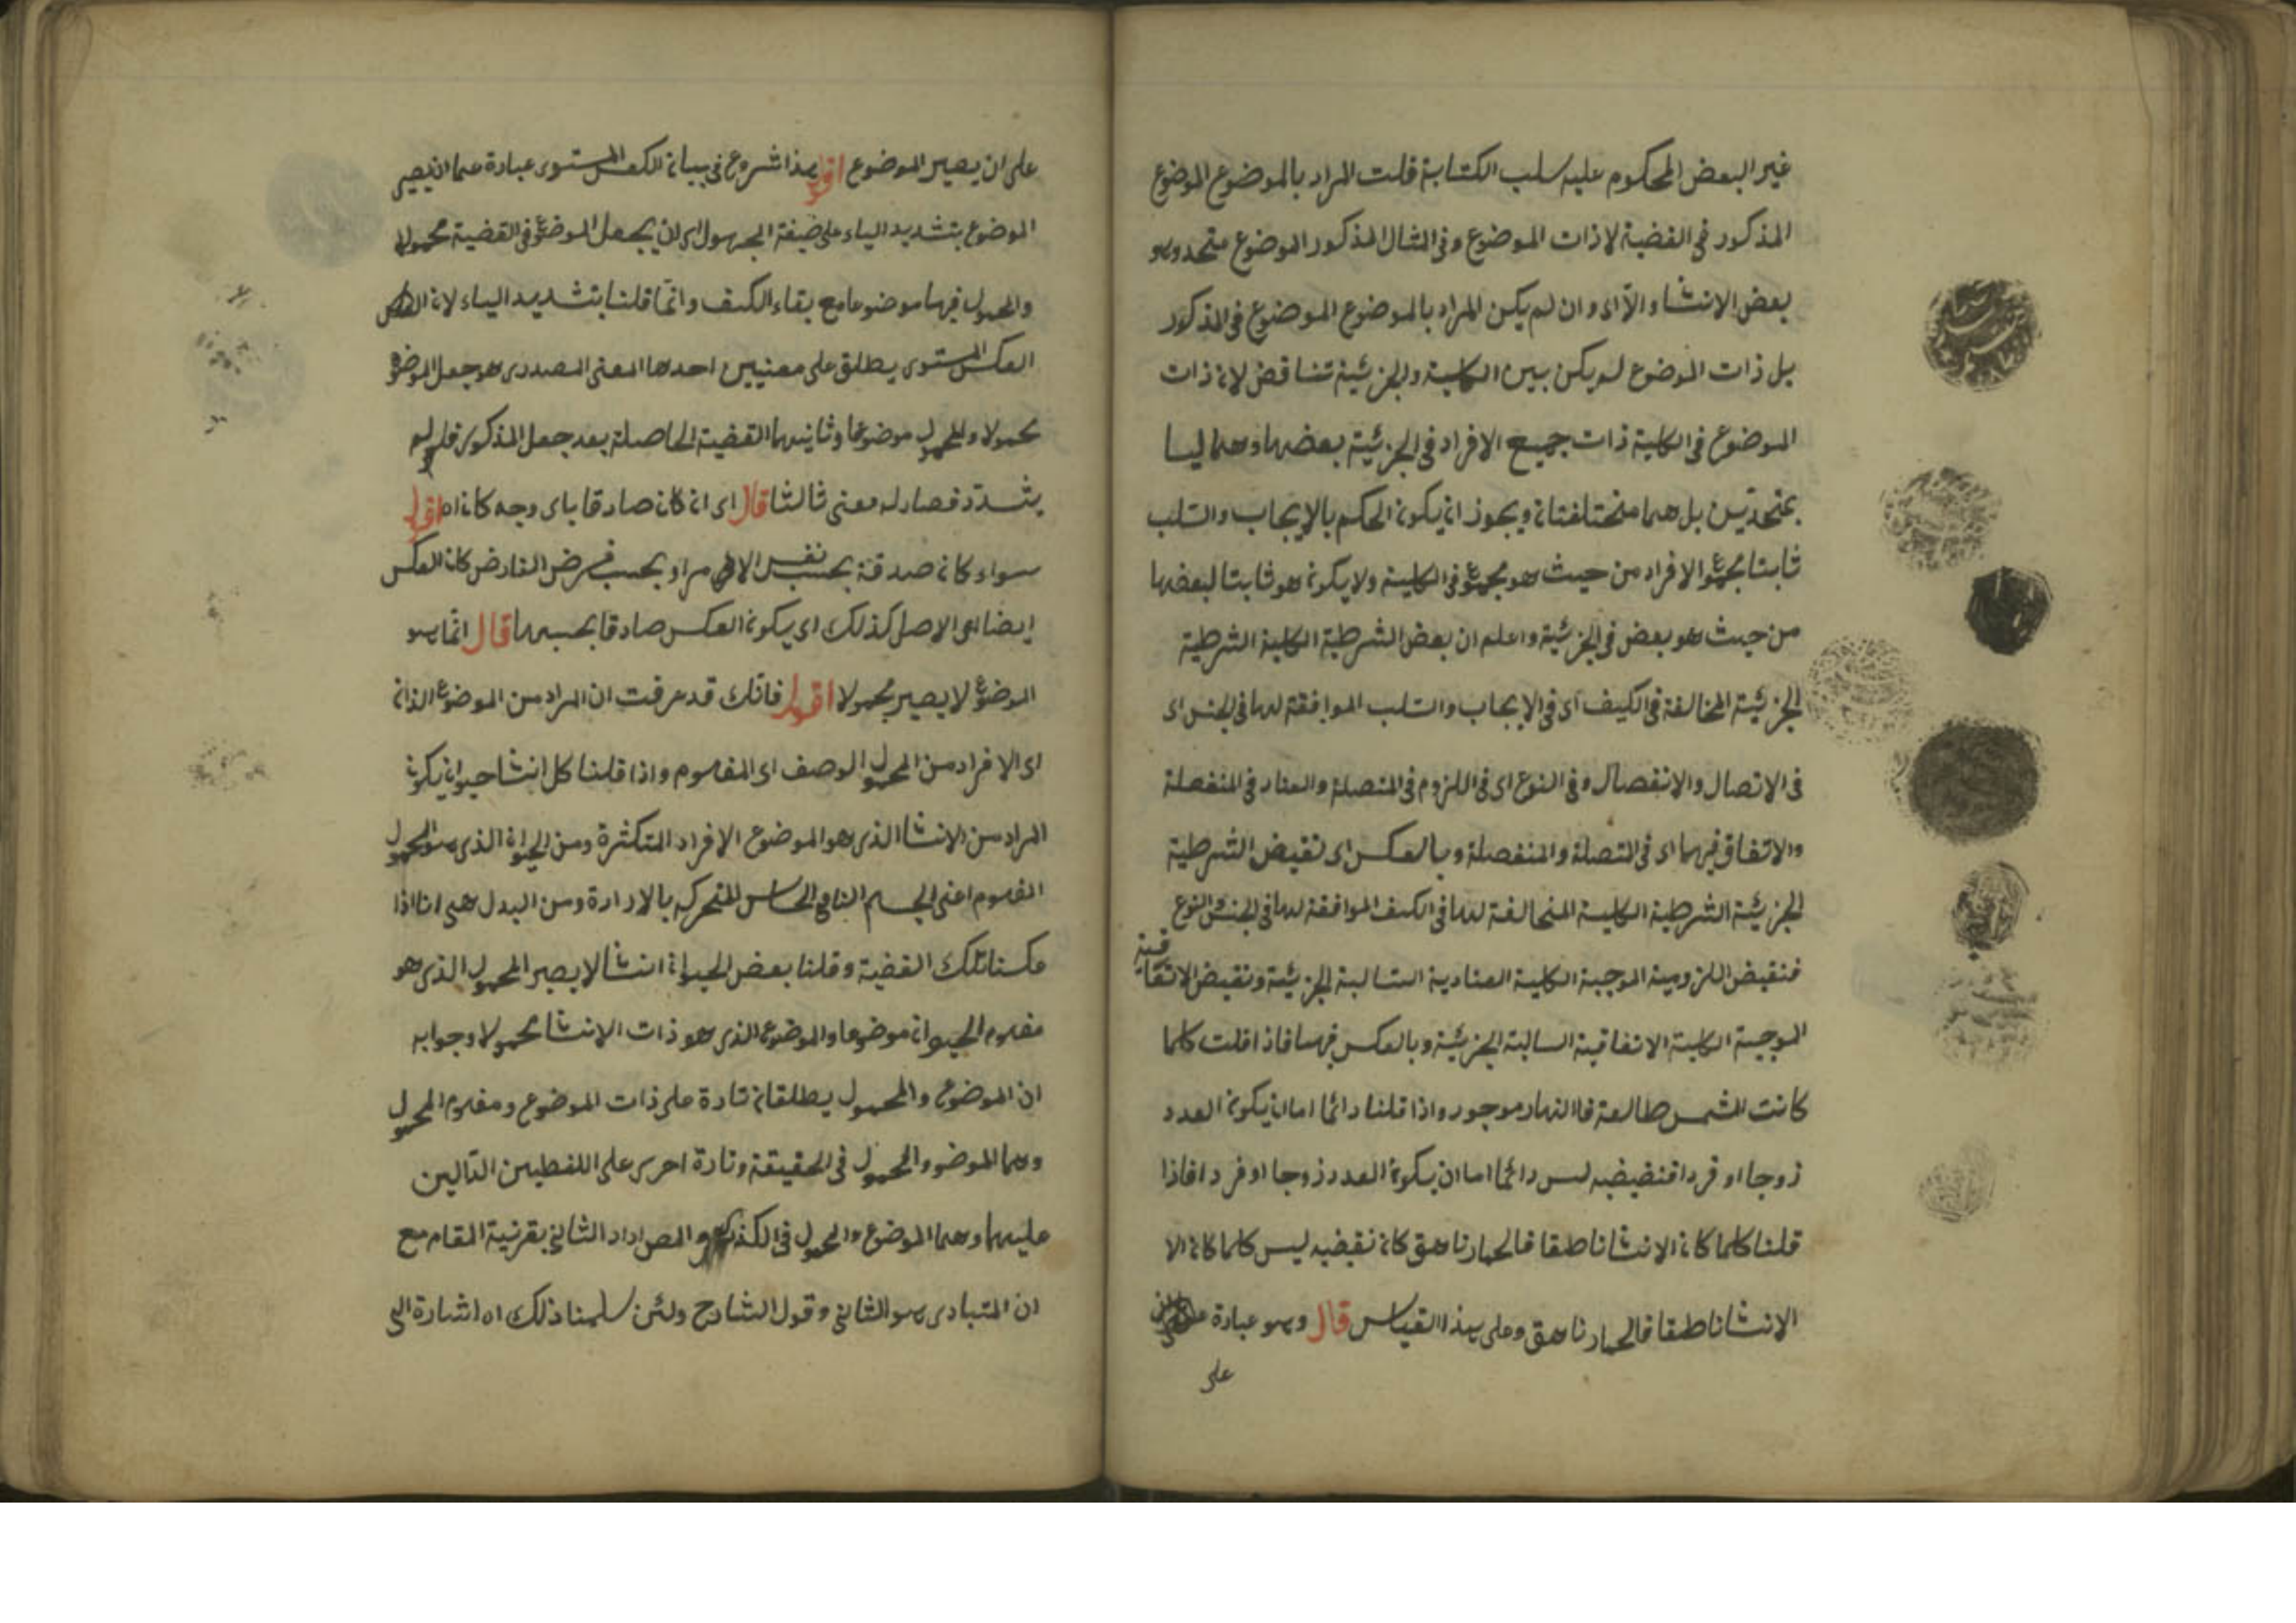 غير البعض المحكوم عليه سلب الكتابة قلت المراد بالموضوع الموضوع
المذكور في القضية لا ذات الموضوع وفي المثال المذكور الموضوع متحد وهو
بعض الانسا والا اى وان لم يكن المراد بالموضوع الموضوع في المذكور
بل ذات الموضوع لم يكن بين الكلية والجزئية تناقض لان ذات
الموضوع في الكلية ذات جميع الافراد في الجزئية بعضها وهما ليسا
بمتحدين بل هما مختلفتان ويجوز ان يكون الحكم بالايجاب والسلب
ثابتا بمجموع الافراد من حيث هو مجموع في الكلية ولا يكون هو ثابتا لبعضها
من حيث هو بعض في الجزئية واعلم ان بعض الشرطية الكلية الشرطية
الجزئية المخالفة في الكيف اى في الايجاب والسلب الموافقة لها في الجنس اى
في الاتصال والانفصال وفي النوع اى في اللزوم في المتصلة والعناد في المنفصلة
والاتفاق فيهما اى في المتصلة والمنفصلة وبالعكس اى نقيض الشرطية
الجزئية الشرطية الكلية المخالفة لها في الكيف الموافقة لها في الجنس والنوع
فنقيض اللزومية الموجبة الكلية العنادية السالبة الجزئية ونقيض الاتفاقية
الموجبة الكلية الاتفاقية السالبة الجزئية وبالعكس فيهما فاذا قلت كلما
كانت الشمس طالعة فاالنهار موجود واذا قلنا دائما اما ان يكون العدد
زوجا او فردا فنقيضه ليس دائما اما ان يكون العدد زوجا او فردا فاذا
قلنا كلما كان الانسا ناطقا فالحمار ناهق كان نقيضه ليس كلما كان الا
الانسا ناطقا فالحمار ناهق وعلى هذا القياس قال وهو عبارة
على
على ان يصير الموضوع اقول هذا شروع في بيان العكس المستوى عبارة عما ان يصير
الموضوع بتشديد الياء على صيغة المجهول اى ان يجعل الموضوع في القضية محمولا
والمحمول فيها موضوعا مع بقاء الكيف وانما قلنا بتشديد الياء لان
العكس المستوى يطلق على معنيين احدهما المعنى المصدرى هو جعل الموضوع
محمولا والمحمول موضوعا وثانيهما القضية الحاصلة بعد جعل المذكور فلو لم
يشدد فصار له معنى ثالثا قال اى ان كان صادقا باى وجه كان اه اقول
سواء كان صدقه بحسب نفس الامر او بحسب فرض الفارض كان العكس
ايضا اى الاصل كذلك اى يكون العكس صادقا بحسبهما قال انما هو
الموضوع لا يصير محمولا اقول فانك قد عرفت ان المراد من الموضوع الذات
اى الافراد من المحمول الوصف اى المفهوم واذا قلنا كل انسا حيوان يكون
المراد من الانسا الذى هو الموضوع الافراد المتكثرة ومن الحيوان الذى هو المحمول
المفهوم اعنى الجسم النامى الحساس المتحرك بالارادة ومن البدل هى انا اذا
عكسنا تلك القضية وقلنا بعض الحيوان انسا لا يصير المحمول الذى هو
مفهوم الحيوان موضوعا والموضوع الذى هو ذات الانسا محمولا وجوابه
ان الموضوع والمحمول يطلقان تارة على ذات الموضوع ومفهوم المحمول
وهما الموضوع والمحمول في الحقيقة وتارة اخرى على اللفظين الدالين
عليهما وهما الموضوع والمحمول في الذكر والمص اراد الثانى بقرنية المقام مع
ان المتبادر هو الثانى وقول الشارح ولئن سلمنا ذلك اه اشارة الى